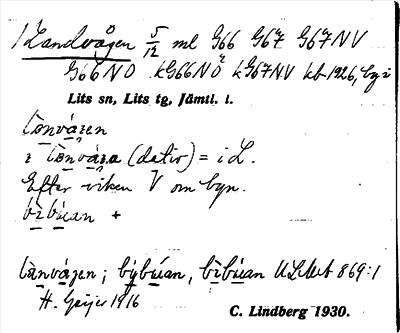 1 Landvågen 5/12 ml G66 G67 G67NV
G66NO kG66NO kG67NV kb 1926, by i
Lits sn, Lits tg, Jämtl. l.
i (dativ) = i L.
Efter viken V om byn.
bìbúan +
býbúan, bìbúan ULMA 869:1
H. Geijer 1916
C. Lindberg 1930.